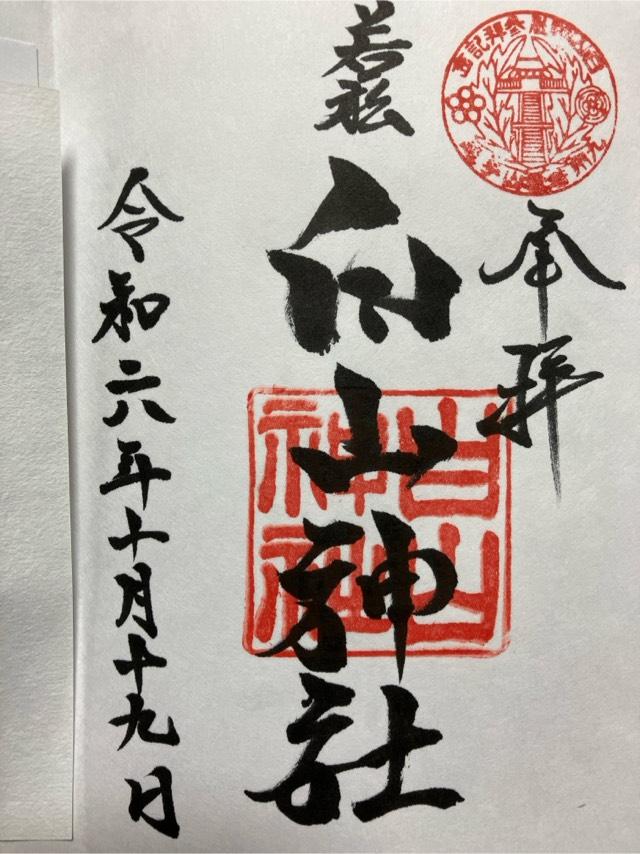 奉拝
若松
白山神社
白山
神社
令和六年十月十九日